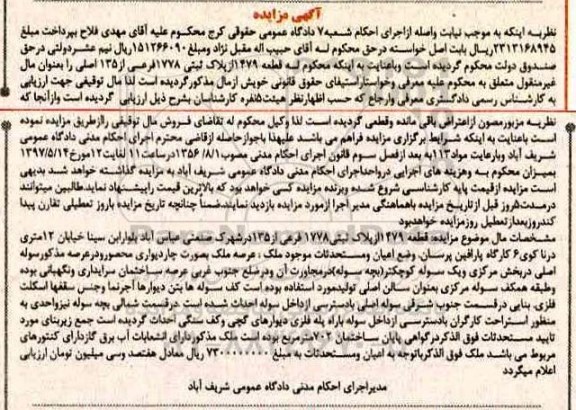 آگهی مزایده
نظریه اینکه به موجب نیابت واصله ازاجرای احکام شعبه۷ دادگاه عمومی حقوقی کرج محکوم علیه آقای مهدی فلاح بپرداخت مبلغ
۲۳۱۳۱۶۸۹۴۵ریال بابت اصل خواسته درحق محکوم لـه آقای حبیب اله مقبل نژاد ومبلغ۱۵۱۲۶۶۰۹۰ریال نیم عشردولتی درحق
صندوق دولت محکوم گردیده است وباعنایت به اینکه محکوم لـه قطعه ۱۴۷۹ازپلاک ثبتی ۱۷۷۸فرعی از۱۳۵ اصلی را بعنوان مال
غیرمنقول متعلق به محکوم علیه معرفی وخواستاراستیفای حقوق قانونی خویش ازمال مذکورگردیده است لذا مال توقیفی جهت ارزیابی
به کارشناس رسمی دادگستری معرفی وارجاع که حسب اظهارنظر هیئت۵نفره کارشناسان بشرح ذیل ارزیابی گردیده است وازآنجا که
نظریه مزبورمصون ازاعتراض باقی مانده وقطعی گردیده است لذا وکیل محکوم له تقاضای فروش مال توقیفی راازطریق مزایده نموده
است باعنایت به اینکه شرایط برگزاری مزایده فراهم می باشد علیهذا باجوازحاصله ازقاضی محترم اجرای احکام مدنی دادگاه عمومی
شریف آباد وبارعایت مواد۱۱۳به بعد ازفصل سوم قانون اجرای احکام مدنی مصوب۸/۱/ ۱۳۵۶ درساعت۱۱ لغایت۱۲مورخ۱۳۹۷/۵/۱۴
بمیزان محکوم بـه وهزینه های اجرایی درواحداجرای احکام مدنی دادگاه عمومی شریف آباد به مزایده گذاشته خواهد شد بدیهی
است مزایده ازقیمت پایه کارشناسی شروع شده وبرنده مزایده کسی خواهد بود که بالاترین قیمت راپیشنهاد نماید.طالبین میتوانند
درمدت۵روز قبل ازتاریخ مزایده باهماهنگی مدیر اجرا ازمورد مزایده بازدید نمایند.ضمناً چنانچه تاریخ مزایده باروز تعطیلی تقارن پیدا
کندروزبعدازتعطیل روزمزایده خواهدبود
مشخصات مال موضوع مزایده: قطعه ۱۴۷۹ازپلاک ثبتی۱۷۷۸فرعی از۱۳۵درشهرک صنعتی عباس آباد بلوارابن سینا خیابان ۱۲متری
درنا کوی۶ کارگاه پارافین پرسان، وضع اعیان ومستحدثات موجود ملک ، عرصه ملک بصورت چاردیواری محصوردرعرصه مذکورسوله
اصلی دربخش مرکزی ویک سوله کوچکتر(بچه سوله)درمجاورت آن ودرضلع جنوب غربی عرصه ساختمان سرایداری ونگهبانی بوده
وطبقه همکف سوله مرکزی بعنوان سالن اصلی تولیدمورد استفاده بوده است کف سوله ها بتن دیوارها آجرنما وجنس سقفها اسکلت
فلزی. بنایی درقسمت جنوب شرقی سوله اصلی بادسترسی ازداخل سوله احداث شده است .درقسمت شمالی بچه سوله نیزواحدی به
منظور استراحت کارگران بادسترسی ازداخل سوله باراه پله فلزی دیوارهای گچی وکف سنگی احداث گردیده است جمع زیربنای مورد
تایید مستحدثات فوق الذکردرگواهی پایان ساختمان ۷۰۲مترمربع بوده است ملک مذکوردارای انشعابات آب برق گازدارای کنتورهای
مربوط می باشد ملک فوق الذکرباتوجه به اعیان ومستحدثات به مبلغ ۷۳۰۰۰۰۰۰۰۰ ریال معادل هفتصد وسی میلیون تومان ارزیابی
اعلام میگردد
مدیراجرای احکام مدنی دادگاه عمومی شریف آباد